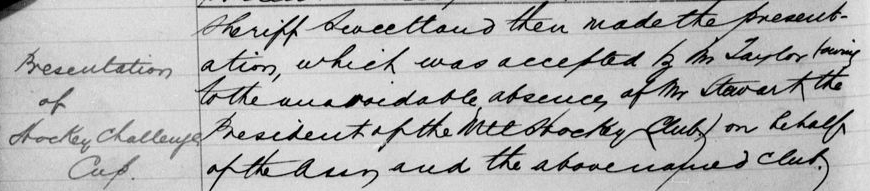 Sheriff Sweetland then made the present-
ation, which was accepted by Mr Taylor (owing
to the unavoidable absence, of Mr Stewart, the
President of the Mtl Hockey Club) on behalf
of the Assn, and the above named Club.
Presentation
of
Hockey Challenge
Cup.